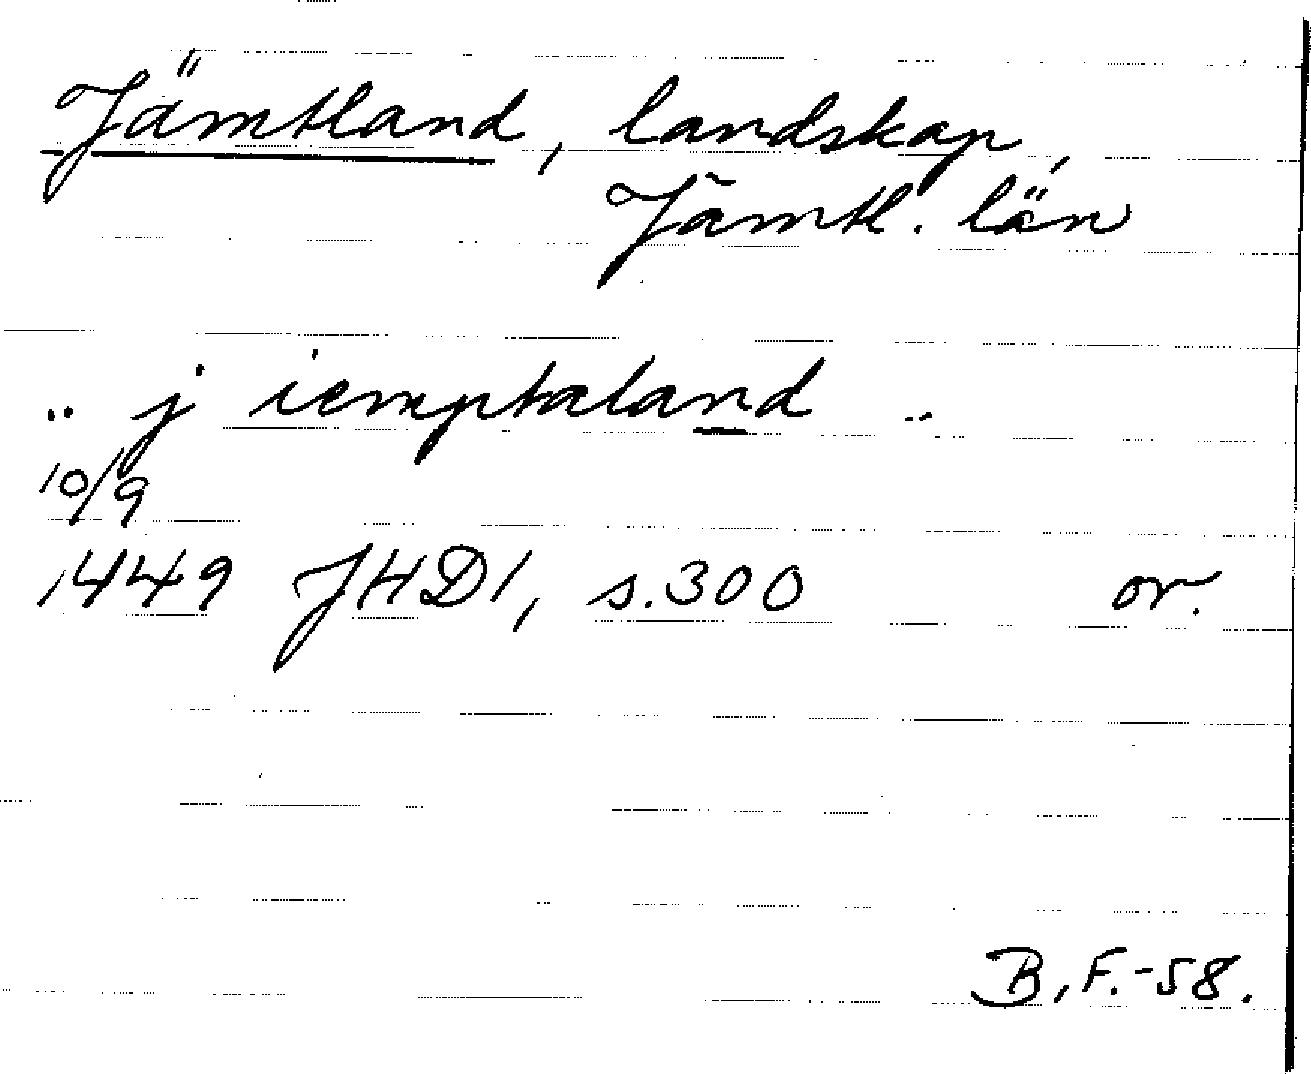 Jämtland, landskap,
Jämtl. län
.. j iemptaland ..
10/9
1449 JHD1, s.300 or.
B.F.-58.